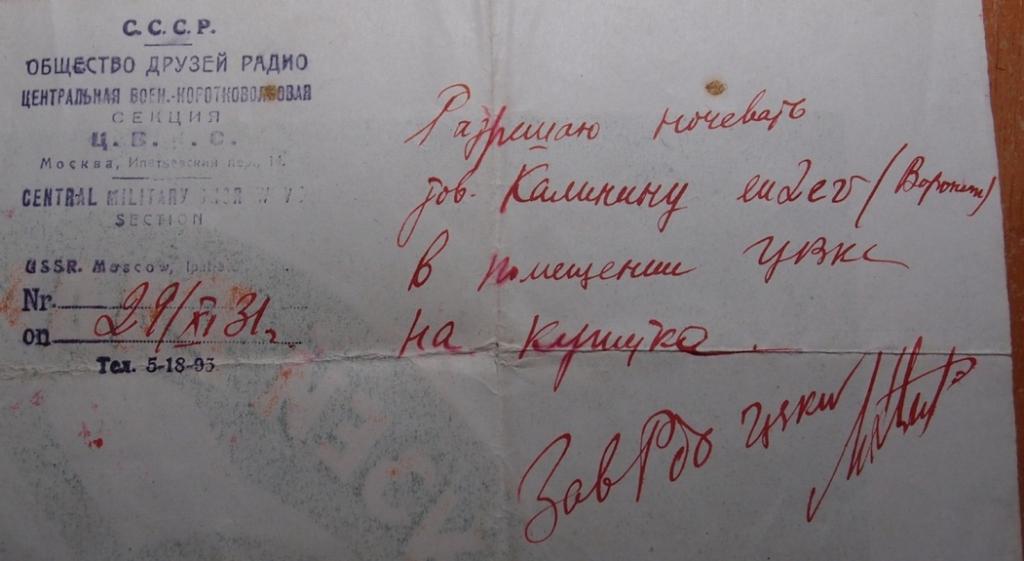 С.С.С.Р.
ОБЩЕСТВО ДРУЗЕЙ РАДИО
ЦЕНТРАЛЬНАЯ ВОЕН.-КОРОТКОВОЛНОВАЯ
СЕКЦИЯ
Ц. В. . С.
Москва, Ипатьевский пер., 14.
CENTRAL MILITARY
SECTION
USSR. Moscow,
Nr.
on 29/XI 31 г.
Тел. 5-18-93
Разрешаю ночевать
тов. Калинину eu2ev (Воронеж)
в помещении ЦВКС
на кушетке.
Зав ЦВКС